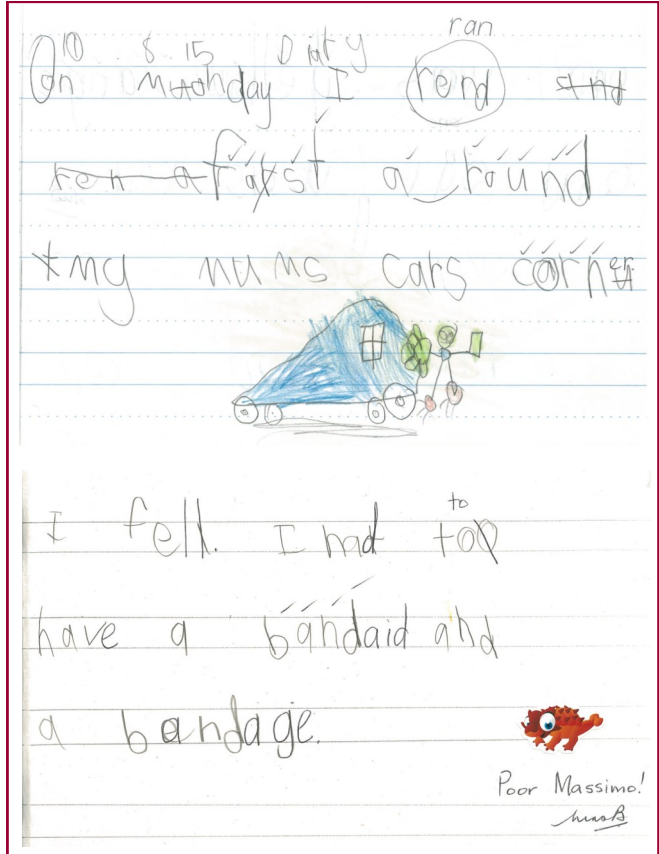 ran
10 8 15 Diary
On Muahday I rend and
ren a farst a round
my mums cars corner
to
I fell. I had too
have a bandaid and
a bandage.
Poor Massimo!